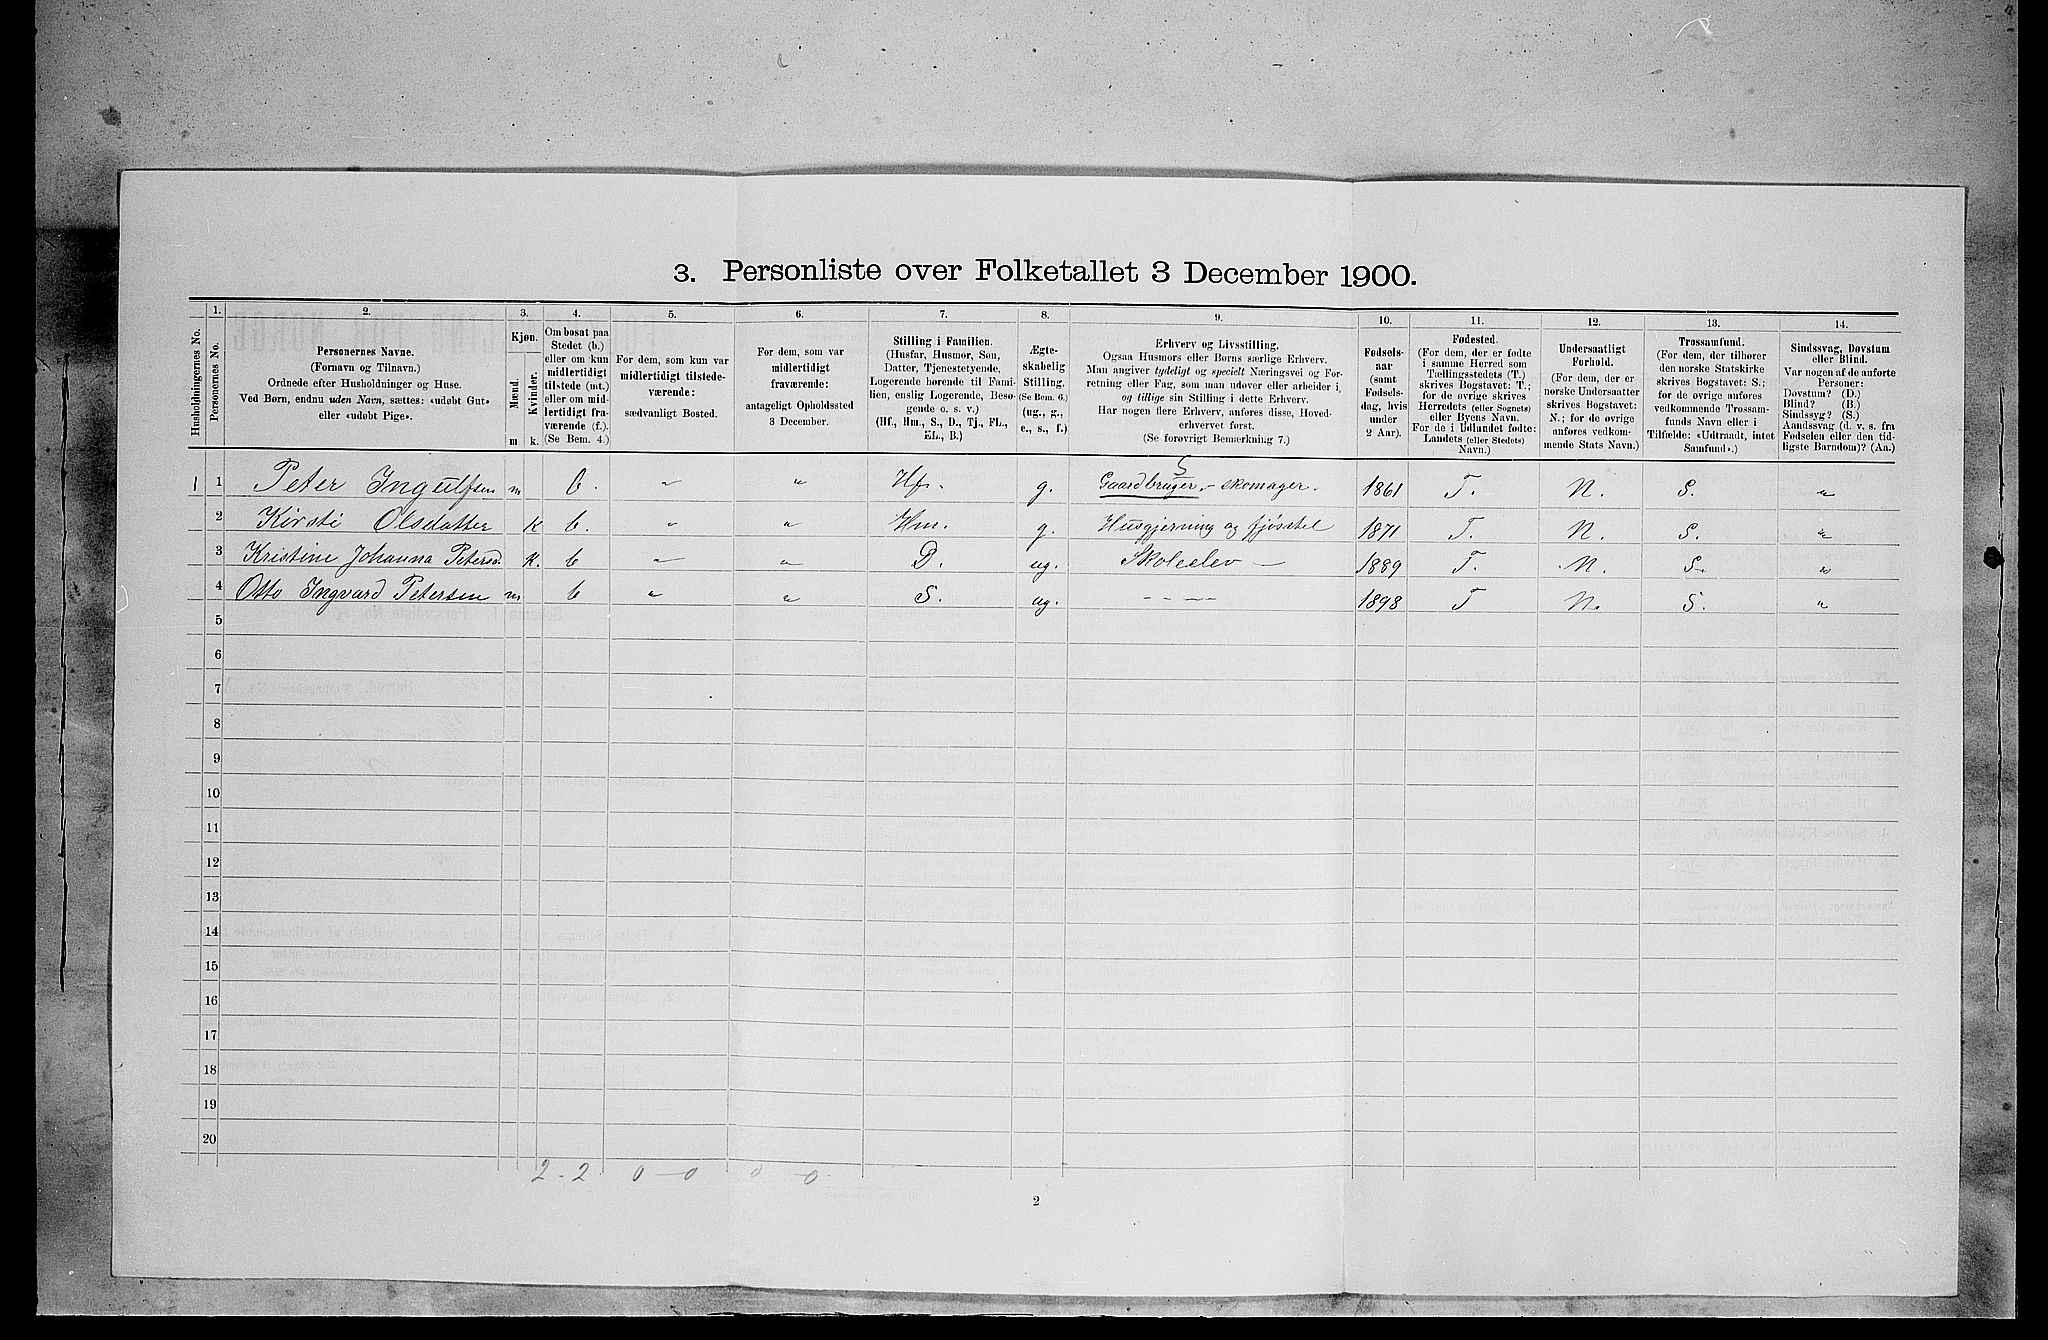 3. Personliste over Folketallet 3 December 1900.
1. 2. 3. 4. 5. 6. 7. 8. 9. 10. 11. 12. 13. 14.
Husholdningernes No.
Personernes No.
Personernes Navne.
(Fornavn og Tilnavn.)
Ordnede efter Husholdninger og Huse.
Ved Børn, endnu uden Navn, sættes: «udøbt Gut»
eller «udøbt Pige».
Kjøn.
Mænd.
Kvinder.
m k.
Om bosat paa
Stedet (b.)
eller om kun
midlertidigt
tilstede (mt.)
eller om mid-
lertidigt fra-
værende (f.).
(Se Bem. 4.)
For dem, som kun var
midlertidigt tilstede-
værende:
sædvanligt Bosted.
For dem, som var
midlertidigt
fraværende:
antageligt Opholdssted
3 December.
Stilling i Familien.
(Husfar, Husmor, Søn,
Datter, Tjenestetyende,
Logerende hørende til Fami-
lien, enslig Logerende, Besø-
gende o. s. v.)
(Hf., Hm., S., D., Tj., FL.,
EL., B.)
Ægte-
skabelig
Stilling.
(Se Bem. 6.)
(ug., g.,
e., s., f.)
Erhverv og Livsstilling.
Ogsaa Husmors eller Børns særlige Erhverv.
Man angiver tydeligt og specielt Næringsvei og For-
retning eller Fag, som man udøver eller arbeider i,
og tillige sin Stilling i dette Erhverv.
Har nogen flere Erhverv, anføres disse, Hoved-
erhvervet først.
(Se forøvrigt Bemærkning 7.)
Fødsels-
aar
(samt
Fødsels-
dag, hvis
under
2 Aar).
Fødested.
(For dem, der er fødte
i samme Herred som
Tællingsstedets (T.)
skrives Bogstavet: T.;
for de øvrige skrives
Herredets (eller Sognets)
eller Byens Navn.
For de i Udlandet fødte:
Landets (eller Stedets)
Navn.)
Undersaatligt
Forhold.
(For dem, der er
norske Undersaatter
skrives Bogstavet:
N.; for de øvrige
anføres vedkom-
mende Stats Navn.)
Trossamfund.
(For dem, der tilhører
den norske Statskirke
skrives Bogstavet: S.;
for de øvrige anføres
vedkommende Trossam-
funds Navn eller i
Tilfælde: «Udtraadt, intet
Samfund».)
Sindssvag, Døvstum
eller Blind.
Var nogen af de anførte
Personer:
Døvstum? (D.)
Blind? (B.)
Sindssyg? (S.)
Aandssvag (d. v. s. fra
Fødselen eller den tid-
ligste Barndom)? (Aa.)
S
1 1 Peter Ingulfsen m b. " " Hf. g. Gaardbruger. - skomager. 1861 T. N. S. "
2 Kirsti Olsdatter K b. " " Hm. g. Husgjerning og fjøsstel 1871 T. N. S. "
3 Kristine Johanna Petersd. K. b " " D. ug. Skoleelev — 1889 T. N. S. "
4 Otto Ingvard Petersen m b " " S. ug. - - - - 1898 T N. S. "
5
6
7
8
9
10
11
12
13
14
15
16
17
18
19
20
2 - 2 0 - 0 0 - 0
2